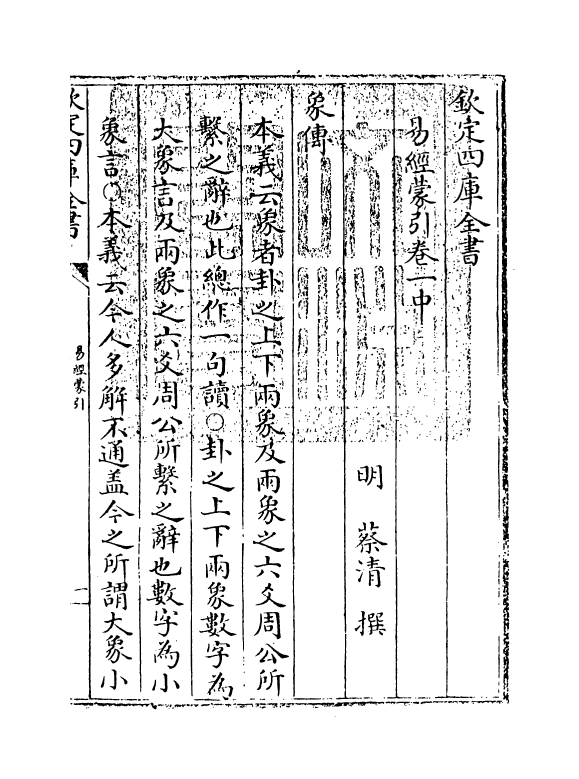 欽定四庫全書
易經蒙引卷一中
明 蔡清 撰
象傳
本義云象者卦之上下兩象及兩象之六爻周公所
繫之辭也此總作一句讀○卦之上下兩象數字為
大象言及兩象之六爻周公所繫之辭也數字為小
象言○本義云今人多解不通盖今之所謂大象小
欽定四庫全書
易經蒙引